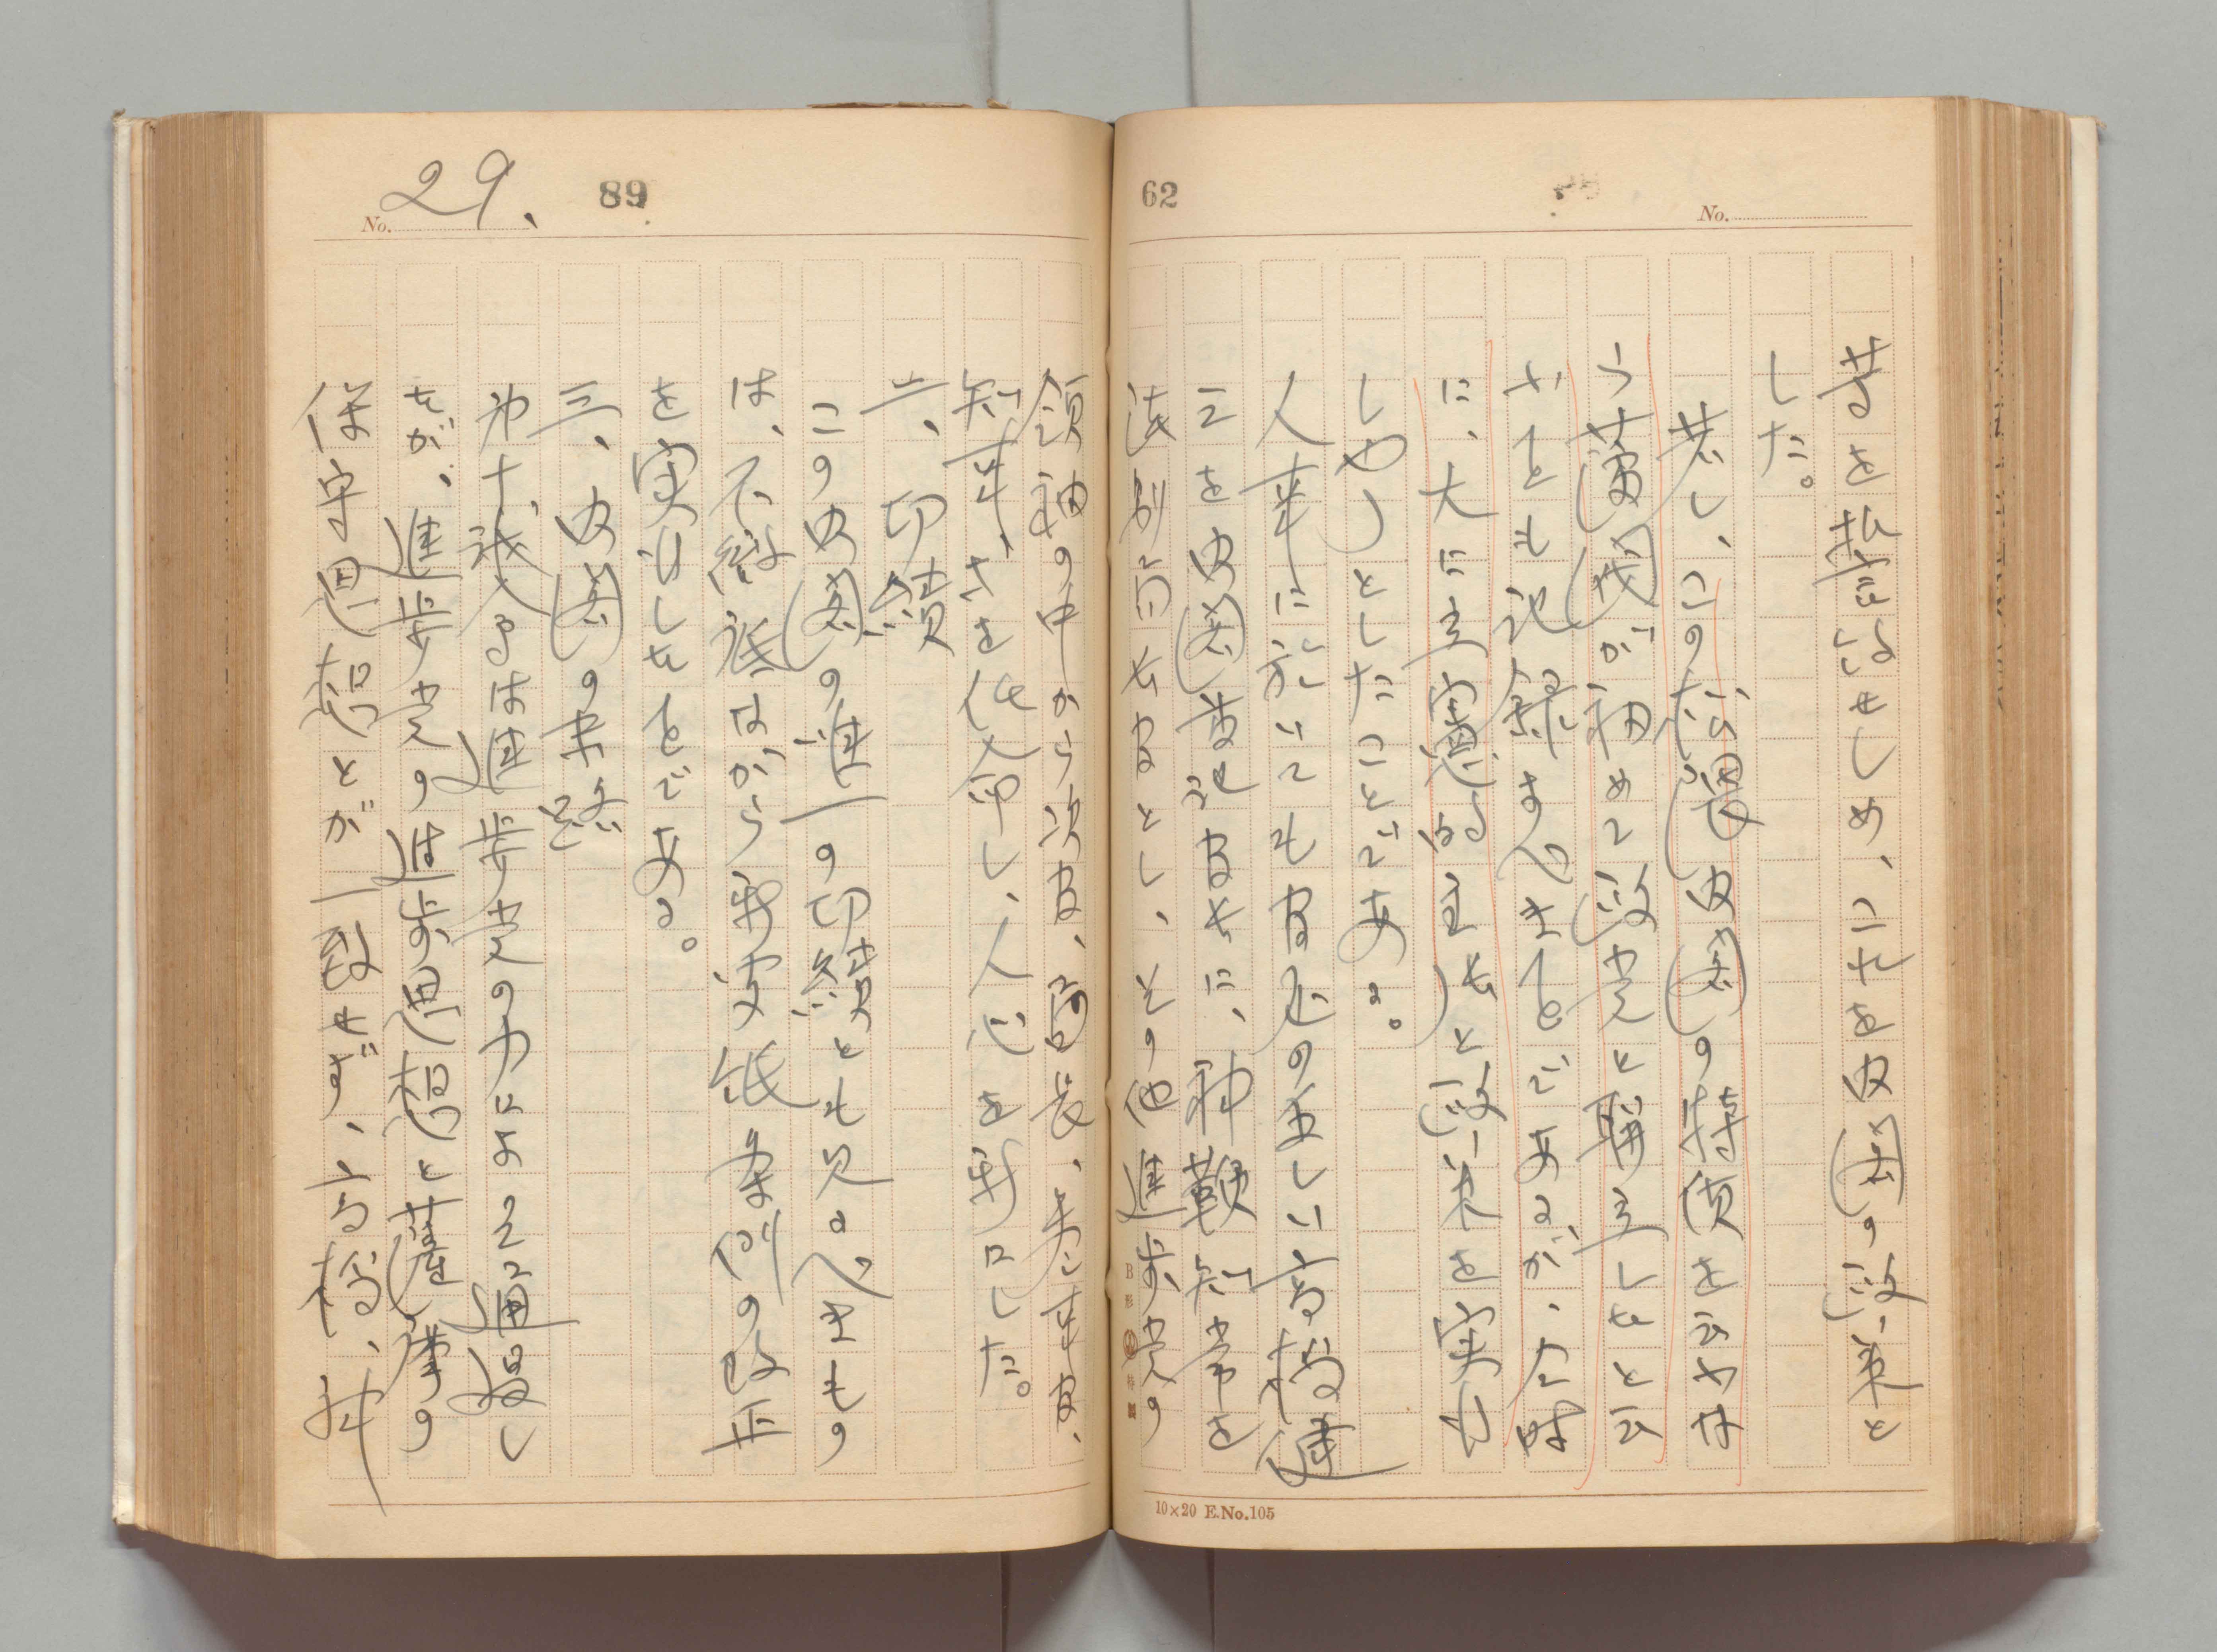 62
No.
等を なさしめ、これを内閣の政策と
した。
若し、この松隈内閣の特質を云ふな
ら薩閥が初めて政党と聯立したと云
ふことも記録すべきことであるが、同時
に、大に立憲的 と政策を実行
しやうとしたことである。
人事に於いても の正しい高橋健
三を内閣書記官長に、神鞭知常を
法制局長官とし、その他進歩党の
10×20 E.No.105
No. 29.
89
領袖の中から次官、局長、参事官、
知事などを任命し、人心を新にした。
二、功績
この内閣の唯一の功績とも見るべきもの
は、不徹底ながら新聞紙条例の改正
を実施したことである。
三、内閣の末路
第十議会は進歩党の力によつて通過し
たが、進歩党の進歩思想と薩摩の
保守思想とが一致せず、高橋、神